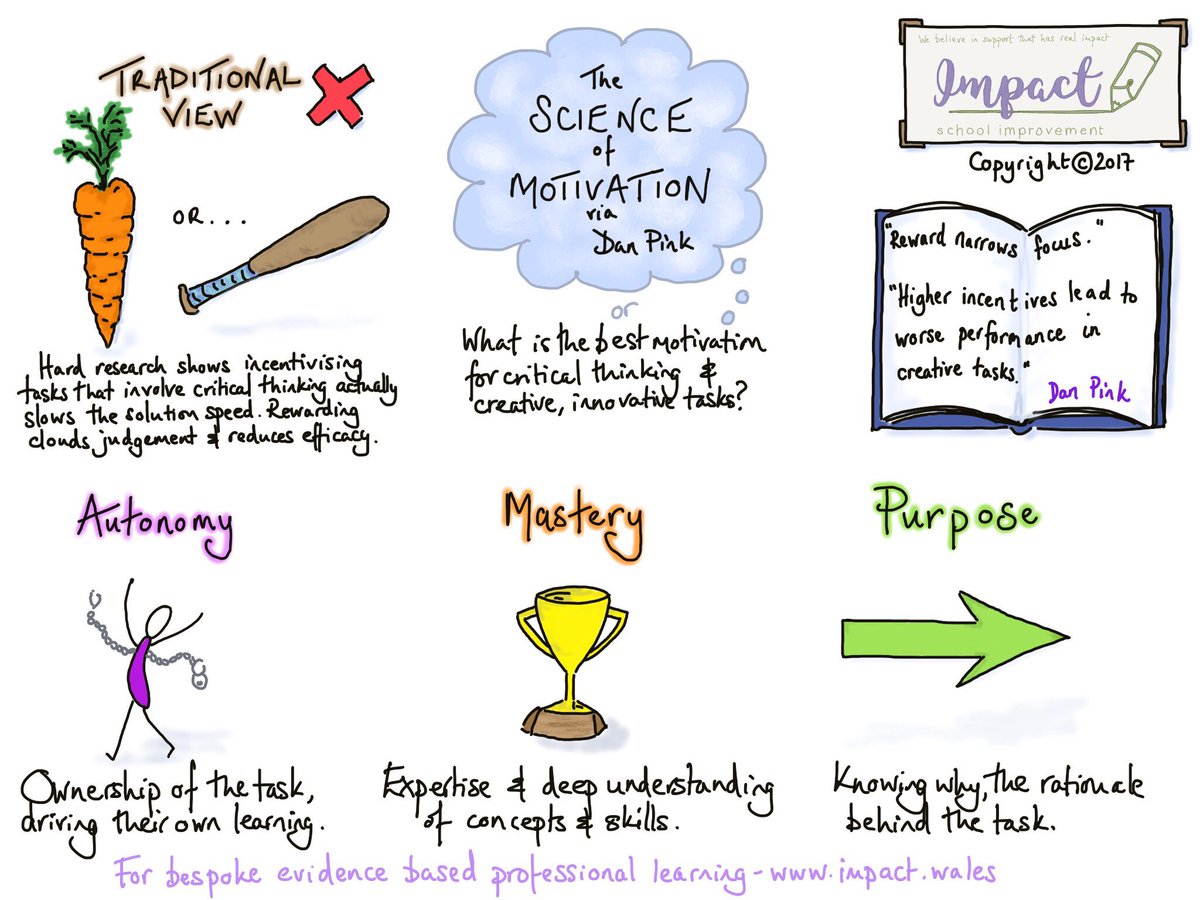 TRADITIONAL
VIEW
OR...
Hard research shows incentivising
tasks that involve critical thinking actually
slows the solution speed. Rewarding
clouds judgement & reduces efficacy.
The
SCIENCE
of
MOTIVATION
via
Dan Pink
or
What is the best motivation
for critical thinking &
creative, innovative tasks?
We believe in support that has real impact
Impact
school improvement
Copyright©2017
"Reward narrows focus."
"Higher incentives lead to
worse performance in
creative tasks."
Dan Pink
Autonomy
Ownership of the task,
driving their own learning.
Mastery
Expertise & deep understanding
of concepts & skills.
Purpose
Knowing why, the rationale
behind the task.
For bespoke evidence based professional learning - www.impact.wales